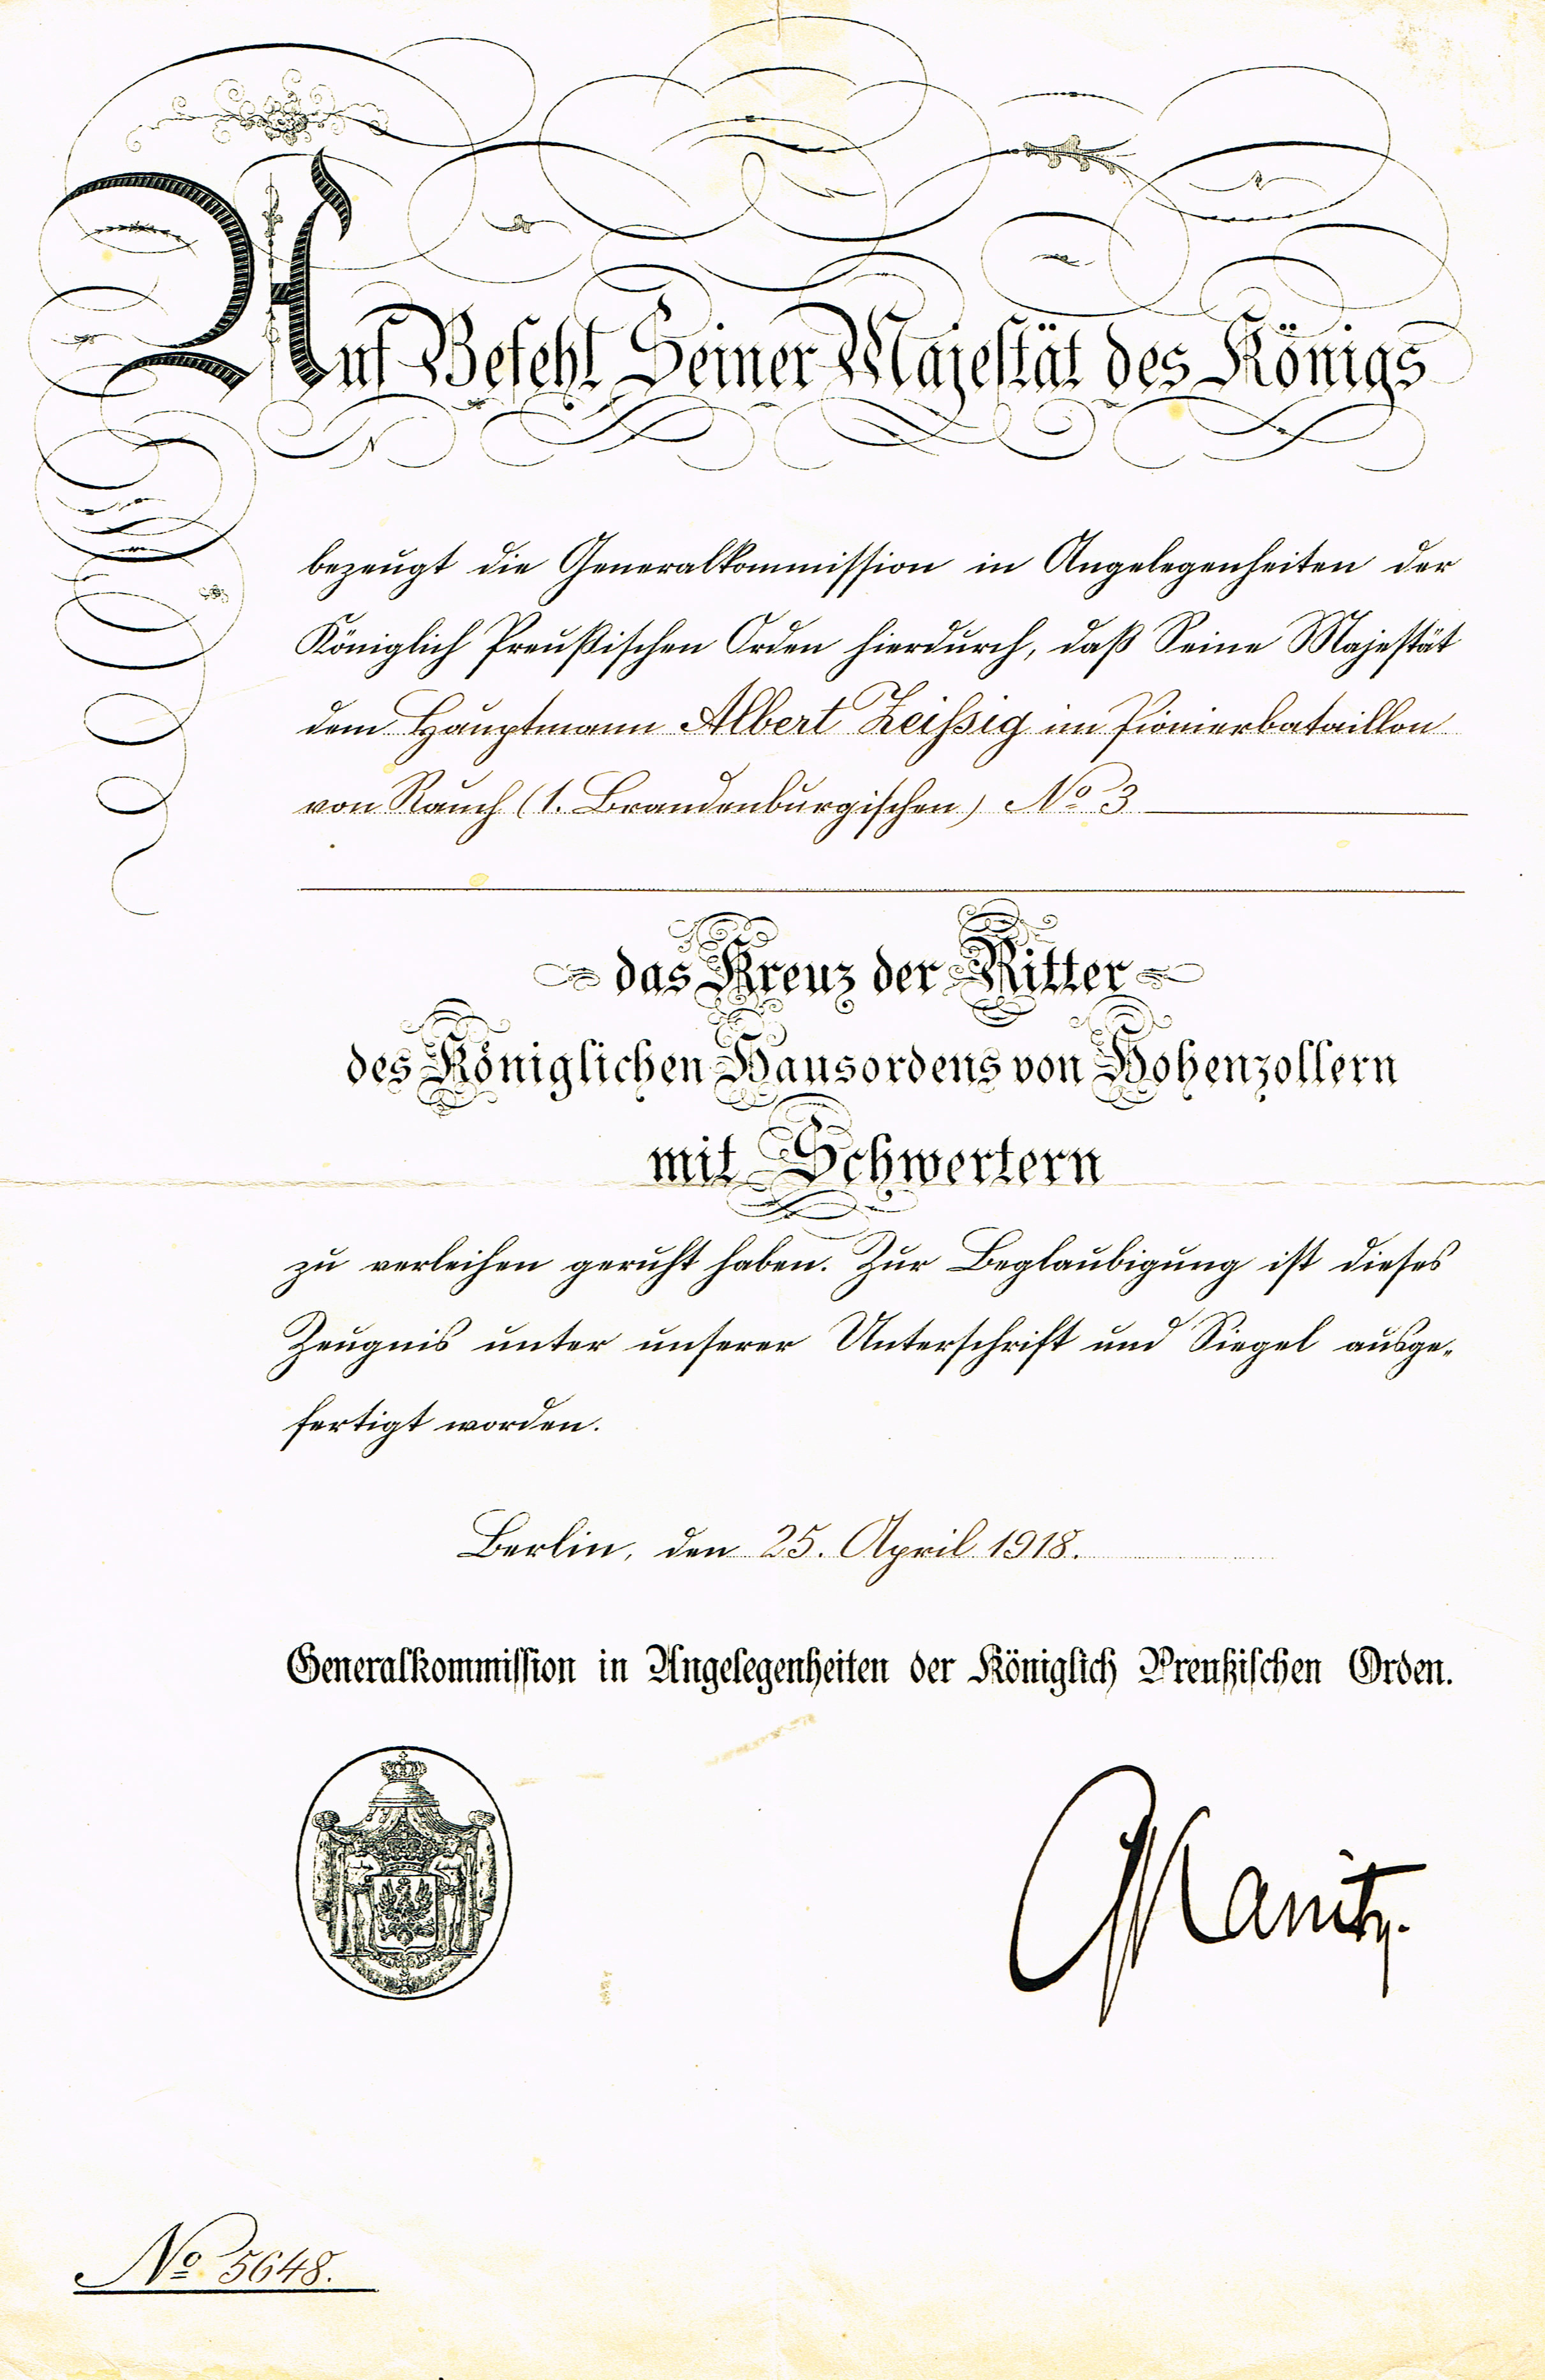 Auf Befehl Seiner Majestät des Königs
bezeugt die Generalkommission in Angelegenheiten der
Königlich Preußischen Orden hierdurch, daß Seine Majestät
dem Hauptmann Albert Zeißig im Pionierbataillon
von Rauch (1. Brandenburgischen) No 3
das Kreuz der Ritter
des Königlichen Hausordens von Hohenzollern
mit Schwertern
zu verleihen geruht haben. Zur Beglaubigung ist dieses
Zeugnis unter unserer Unterschrift und Siegel ausge-
fertigt worden.
Berlin, den 25. April 1918.
Generalkommission in Angelegenheiten der Königlich Preußischen Orden.
No 5648.